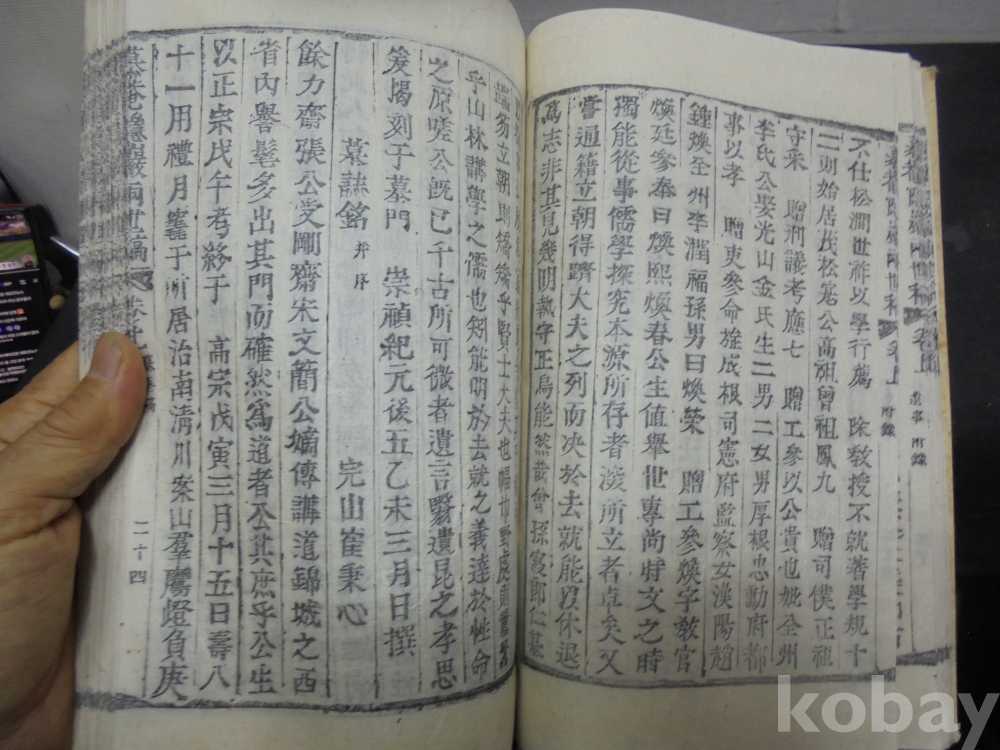 不仕松澗世祥以學行薦 除教授不就著學規十
二則始居茂松 公高祖曾祖鳳九 贈司僕正祖
守采 贈刑議考應七 贈工參以公貴也妣全州
李氏公娶光山金氏生二男二女男厚根忠勳府都
事以孝 贈吏參命 成根司憲府監察女漢陽趙
鍾煥全州李潤福孫男曰煥榮 贈工參煥字敎官
煥廷參奉曰煥熙煥春公生值舉世專尚時文之時
獨能從事儒學探究本源所存者深所立者卓矣又
嘗通籍立朝得躋大夫之列而决於去就能以休退
爲志非其見幾明執守正烏能然哉曾孫 郎仁基
端笏立朝則 乎賢士大夫也幅巾野處則
乎山林講學之儒也矧能明於去就之義達於性命
之原嗟公旣已千古所可徵者遺言 遺昆之孝思
爰揭刻于墓門 崇禎紀元後五乙未三月日撰
墓誌銘 幷序
完山崔秉心
餘力齋張公受剛齋宋文簡公嫡傳講道錦城之西
省內譽髦多出其門而確然爲道者公其庶乎公生
以正宗戊午考終于 高宗戊寅三月十五日壽八
十一用禮月窆于所居治南淸川案山羣 燈負庚
兩世稿 卷
二十四
卷上
附錄
遺事 附錄
kobay